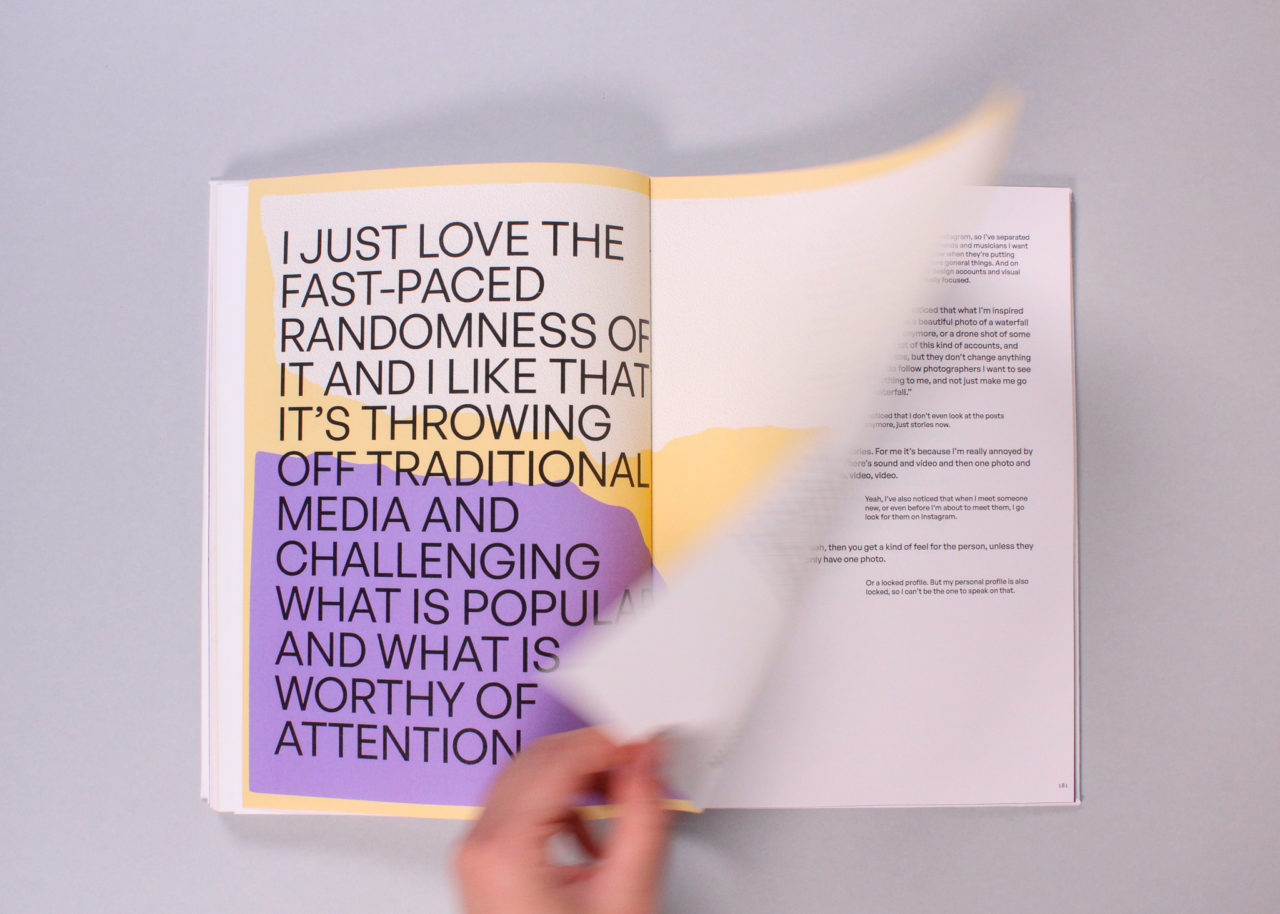 I JUST LOVE THE
FAST-PACED
RANDOMNESS OF
IT AND I LIKE THAT
IT’S THROWING
OFF TRADITIONAL
MEDIA AND
CHALLENGING
WHAT IS POPULAR
AND WHAT IS
WORTHY OF
ATTENTION
so I’ve separated
and musicians I want
when they’re putting
general things. And on
design accounts and visual
focused.
that what I’m inspired
beautiful photo of a waterfall
anymore, or a drone shot of some
of this kind of accounts, and
but they don’t change anything
follow photographers I want to see
to me, and not just make me go
noticed that I don’t even look at the posts
anymore, just stories now.
For me it’s because I’m really annoyed by
there’s sound and video and then one photo and
video, video.
Yeah, I’ve also noticed that when I meet someone
new, or even before I’m about to meet them, I go
look for them on Instagram.
then you get a kind of feel for the person, unless they
only have one photo.
Or a locked profile. But my personal profile is also
locked, so I can’t be the one to speak on that.
181